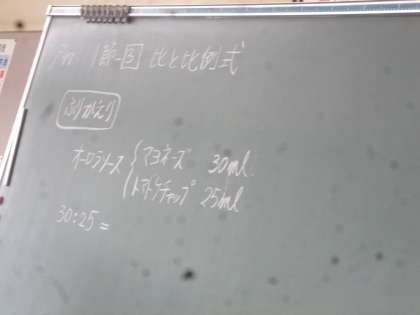 比と比例式
ふりかえり
オーロラソース マヨネーズ 30ml
トマトケチャップ 25ml
30:25=